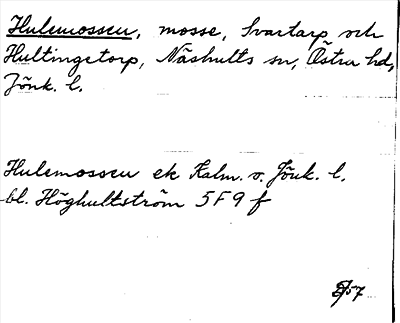 Hulemossen, mosse, Svartarp och
Hultingetorp, Näshults sn, Östra hd,
Jönk. l.
Hulemossen ek Kalm. o. Jönk. l.
bl. Höghultström 5F9f
57